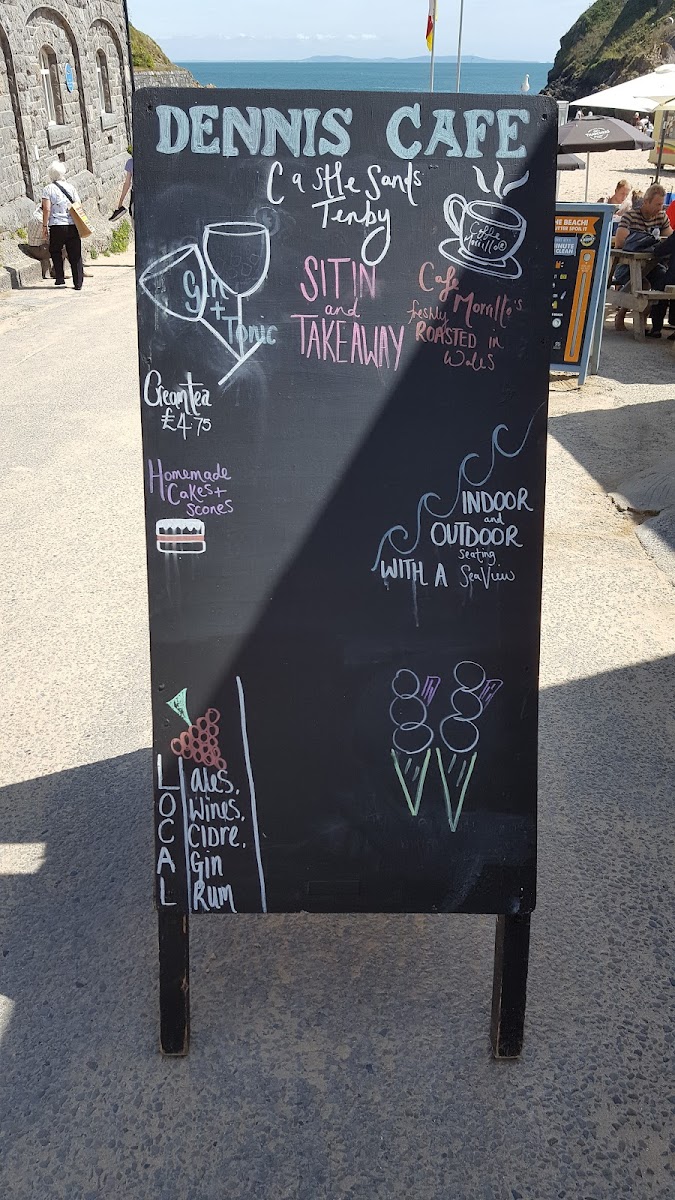 DENNIS CAFE
Castle Sands
Tenby
Coffee
Morillo
Gin
+
Tonic
SIT IN
and
TAKEAWAY
Cafe
Morillo's
freshly
ROASTED in
Wales
Cream tea
£4.75
Homemade
Cakes +
scones
INDOOR
and
OUTDOOR
seating
WITH A Sea View
LOCAL
Ales,
Wines,
Cidre,
Gin
Rum
BEACH!